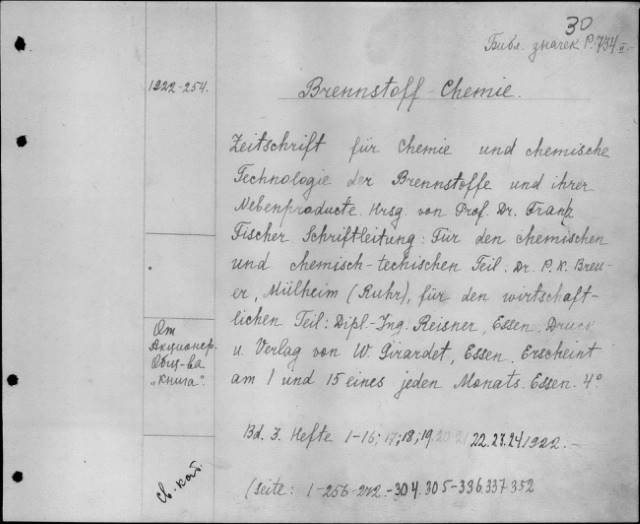 30
Библ. значек P. 734 II
1922-254.
Brennstoff-Chemie.
Zeitschrift für Chemie und chemische
Technologie der Brennstoffe und ihrer
Nebenproducte. Hrsg. von Prof. Dr. Franz
Fischer Schriftleitung: Für den chemischen
und chemisch-techischen Teil: Dr. P. K. Breu-
er, Mülheim (Ruhr), für den wirtschaft-
lichen Teil: Dipl.-Ing. Reisner, Essen. Druck
u. Verlag von W. Girardet, Essen. Erscheint
am 1 und 15 eines jeden Monats. Essen. 4°
От
Акционер.
Общ-ва
"Книга".
Bd. 3. Hefte 1-16; 17; 18; 19, 20 21 22. 23. 24 1922.-
св. кат.
(Seite: 1-256-272.-304. 305-336. 337. 352